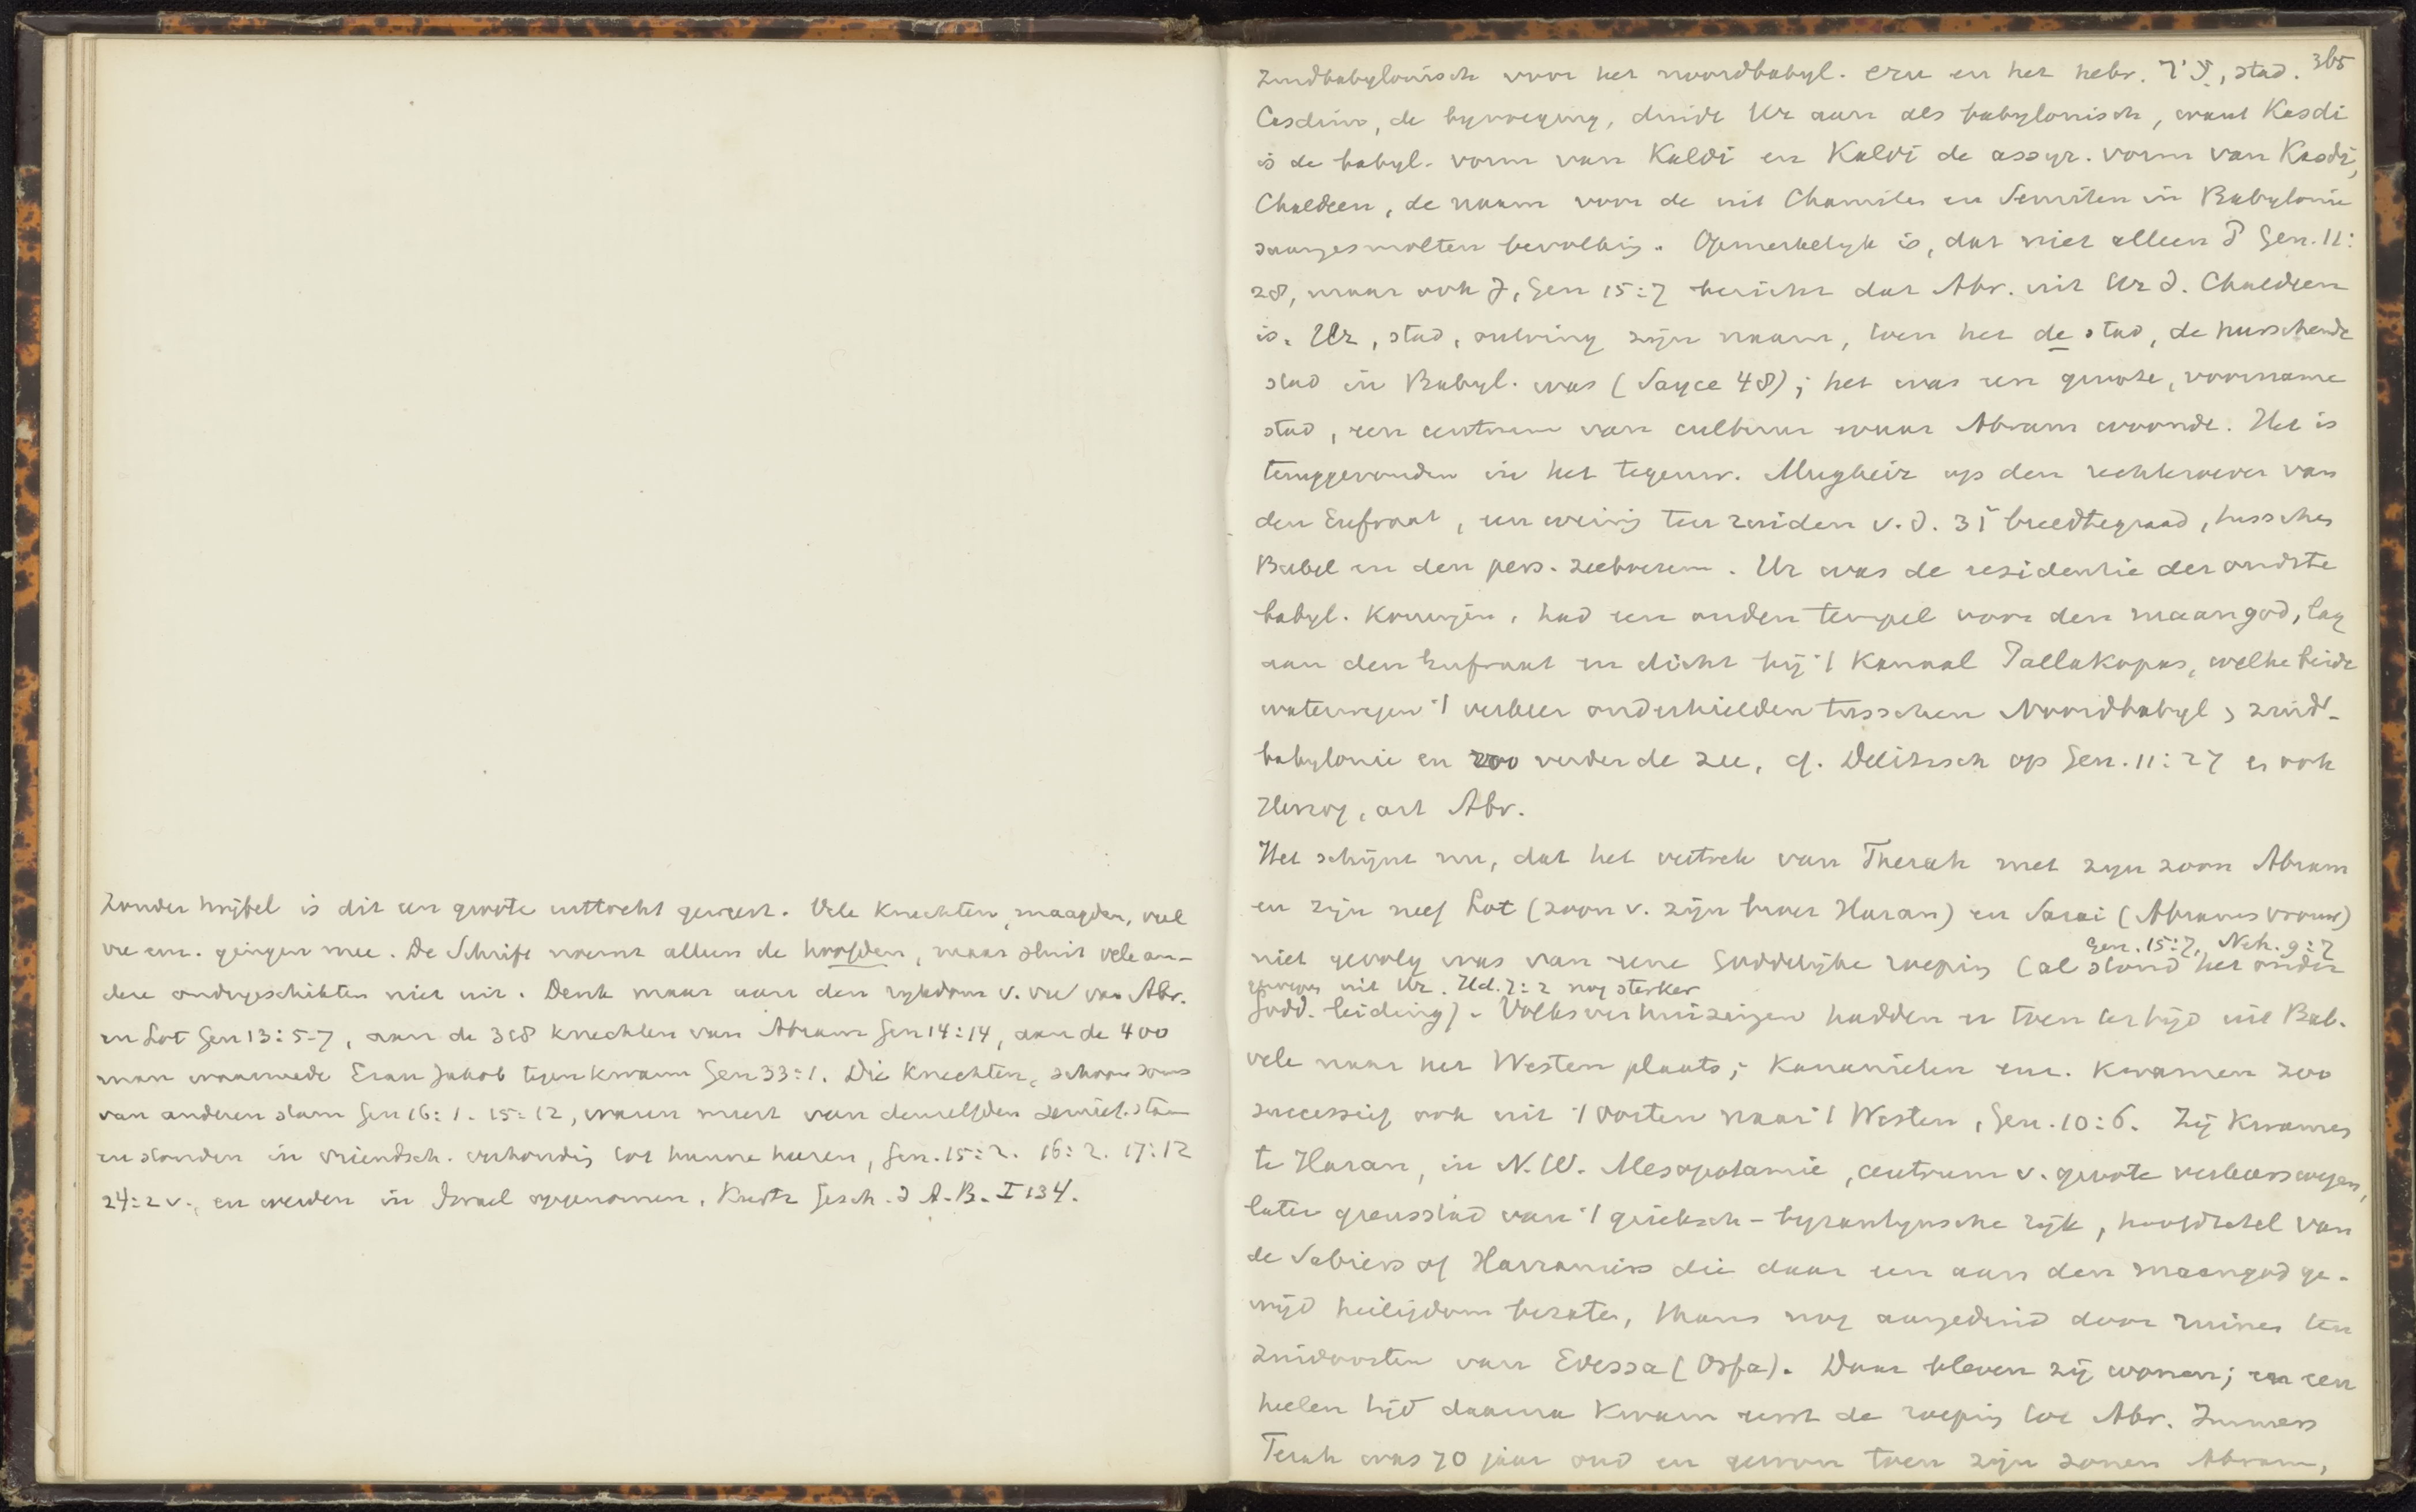 Zonder twijfel is dit een groote uittocht geweest. Vele knechten, maagden, veel
vee enz. gingen mee. De Schrift noemt alleen de hoofden, maar sluit vele an-
dere ondergeschikten niet uit. Denk maar aan den rykdom v. vee van Abr.
en Lot Gen 13:5-7, aan de 318 knechten van Abram Gen 14:14, aan de 400
man waarmede Esau Jakob tegenkwam Gen 33:1. Die knechten, schoon soms
van anderen stam Gen 16:1. 15:12, waren meest van denzelfden semiet. stam
en stonden in vriendsch. verhoudig tot hunne heeren, Gen. 15:2. 16:2. 17:12
24:2 v., en werden in Israel opgenomen, Kurtz Gesch. d A.B. I 134.
365
Zuidbabylonisch voor het noordbabyl. eru en het hebr. עִיר, stad.
Casdim, de byvoeging, duidt Ur aan als babylonisch, want Kasdi
is de babyl. vorm van Kaldi en Kaldi de assyr. vorm van Kasdi,
Chaldeen, de naam voor de uit Chamiten en Semiten in Babylonie
saamgesmolten bevolkig. Opmerkelyk is, dat niet alleen P Gen. 11:
28, maar ook J, Gen 15:7 bericht dat Abr. uit Ur d. Chaldeen
is. Ur, stad, ontving zijn naam, toen het de stad, de heerschende
stad in Babyl. was (Sayce 48); het was een groote, voorname
stad, een centrum van cultuur waar Abram woonde. Het is
teruggevonden in het tegenw. Mugheir op den rechteroever van
den Eufraat, een weinig ten zuiden v.d. 31° breedtegraad, tusschen
Babel en den perz. zeeboezem. Ur was de residentie der oudste
babyl. koningen, had een ouden tempel voor den maangod, lag
aan den Eufraat en dicht bij 't kanaal Pallakopas, welke beide
waterwegen 't verkeer onderhielden tusschen Noordbabyl, zuid-
babylonie en zoo verder de zee, cf. Delitzsch op Gen. 11:27 en ook
Herzog, art Abr.
Het schijnt nu, dat het vertrek van Therah met zyn zoon Abram
en zijn neef Lot (zoon v. zijn broer Haran) en Sarai (Abrams vrouw)
Gen. 15:7, Neh. 9:7
niet gevolg was van eene Goddelijke roeping (al stond het onder
uit Ur. Hd. 7:2 nog sterker
Godd. leiding). Volksverhuizingen hadden er toen ter tijd uit Bab.
vele naar het Westen plaats; Kananieten enz. kwamen zoo
successief ook uit 't Oosten naar 't Westen, Gen. 10:6. Zij kwamen
te Haran, in N.W. Mesopotamie, centrum v. groote verkeerswegen,
later grensstad van 't grieksch-byzantynsche rijk, hoofdzetel van
de Sabiers of Harraniers die daar een aan den maangod ge-
wijd heiligdom bezaten, thans nog aangeduid door ruines ten
zuidoosten van Edessa (Orfa). Daar bleven zij wonen; en een
heelen tijd daarna kwam eerst de roeping tot Abr. Immers
Terah was 70 jaar oud en gewon toen zijn zonen Abram,